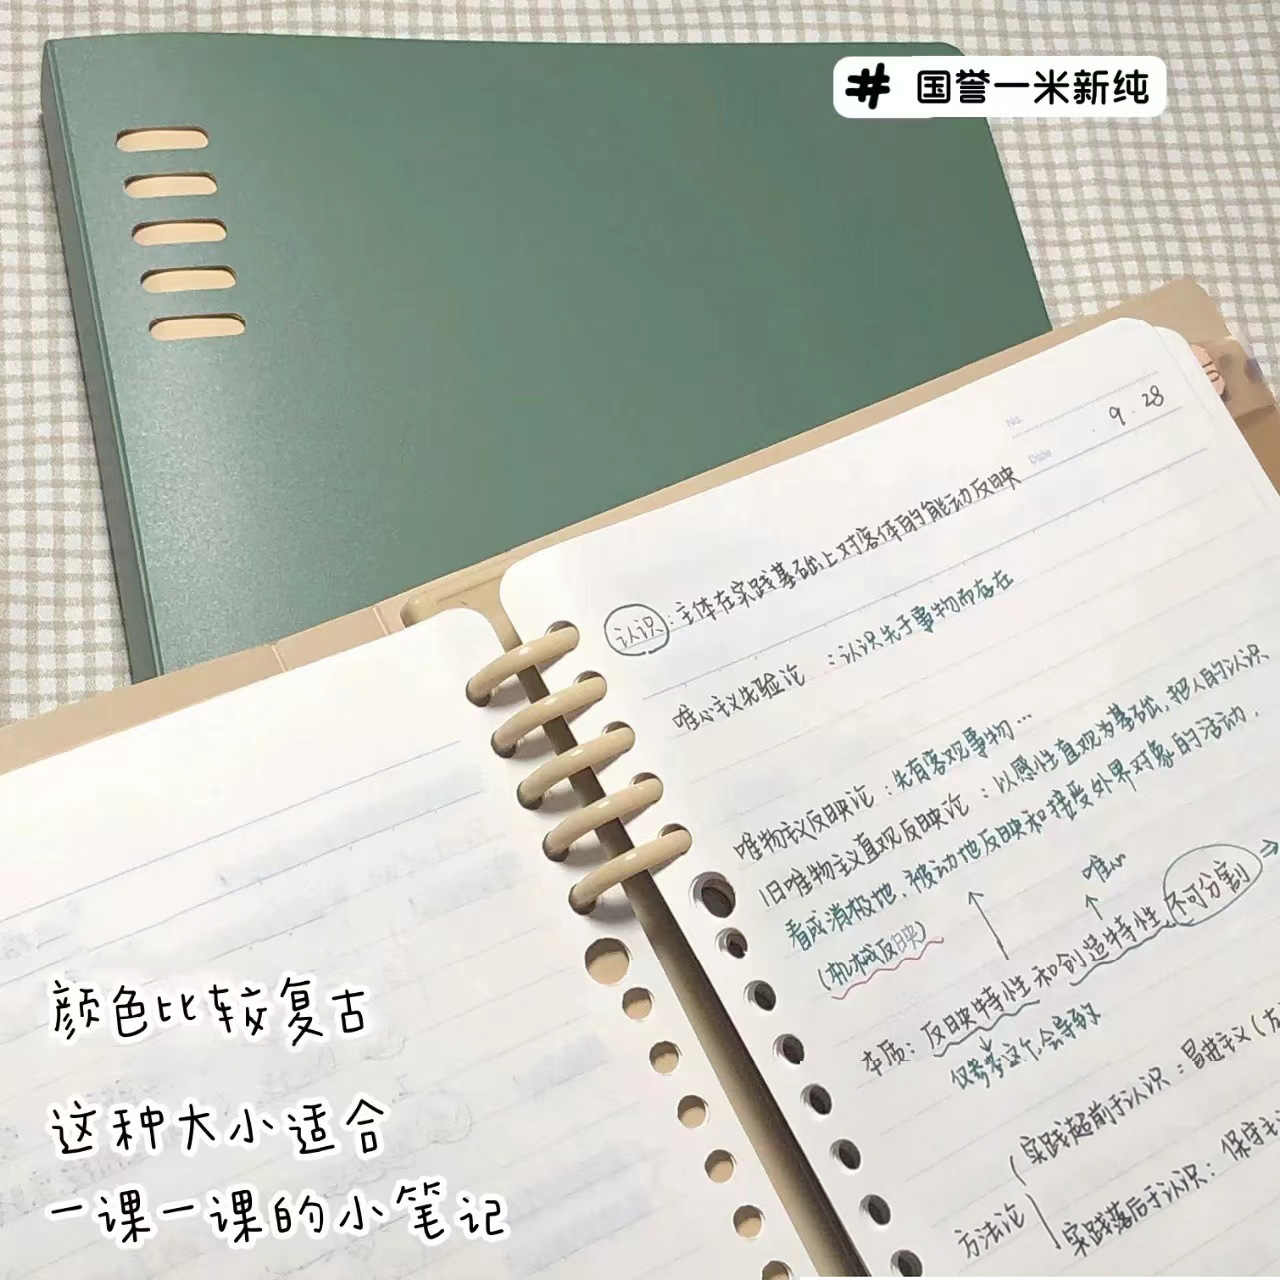 # 国誉一米新纯
No.
Date
9.28
认识:主体在实践基础上对客体的能动反映
唯心主义先验论:认识先于事物而存在
唯物主义反映论:先有客观事物…
旧唯物主义直观反映论:以感性直观为基础,把人的认识
看成消极地,被动地反映和接受外界对象的活动.
(机械反映)
唯心
本质:反映特性和创造特性,不可分割
仅参考这个会导致
实践超前于认识:冒进主义(
方法论
实践落后于认识:保守主
颜色比较复古
这种大小适合
一课一课的小笔记